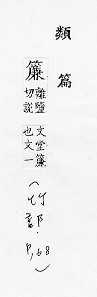 類篇
簾
離鹽
切說
文堂簾
也文一
(竹部. P,68)